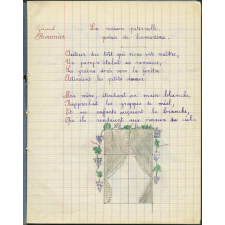 Gérard
Bournier
La maison paternelle.
poésie de Lamartine.
Autour du toit qui nous vit naître,
Un pampre étalait ses rameaux,
Ses grains dorés vers la fenêtre
Attiraient les petits oiseaux.
Ma mère, étendant sa main blanche,
Rapprochait les grappes de miel,
Et ses enfants suçaient la branche,
Qu'ils rendaient aux oiseaux du ciel.